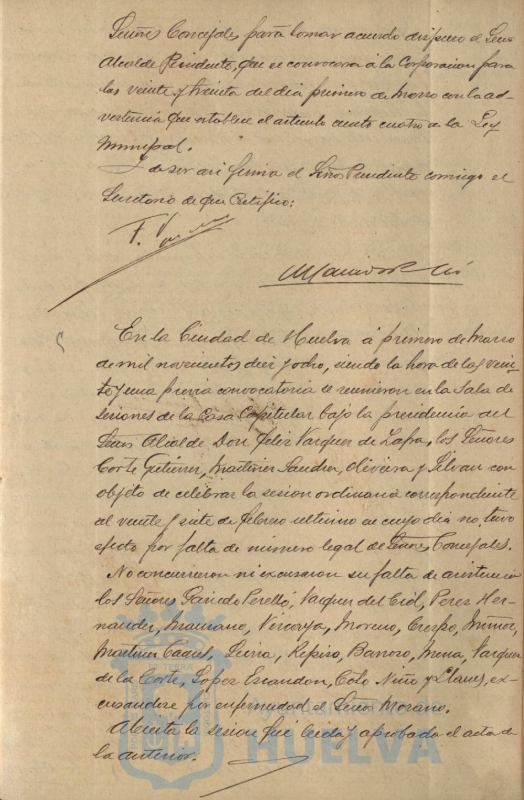 Señores Concejales para tomar acuerdo dispuso el Señor
Alcalde Presidente, que se convocara á la Corporacion para
las veinte y treinta del dia primero de Marzo con la ad-
vertencia que establece el articulo ciento cuatro de la Ley
Municipal.
Y de ser asi firma el Señor Presidente conmigo el
Secretario de que Certifico:
F. V
En la Ciudad de Huelva á primero de Marzo
de mil novecientos diez y ocho, siendo la hora de las vein-
te y una previa convocatoria se reunieron en la Sala de
sesiones de la Casa Capitular bajo la presidencia del
Señor Alcalde Don Felix Vazquez de Zafra, los Señores
Corte Gutierrez, Martinez Sanchez, Oliveira y Silvan con
objeto de celebrar la sesion ordinaria correspondiente
al veinte y siete de Febrero ultimo en cuyo dia no tuvo
efecto por falta de numero legal de Señores Concejales.
No concurrieron ni excusaron su falta de asistencia
los Señores Garrido Perelló, Vazquez del Cid, Perez Her-
nandez, Mascaros, Vizcaya, Moreno, Crespo, Muñoz,
Martinez, Seirra, Repiso, Barroso, Mena, Vazquez
de la Corte, Lopez Escandon, Coto Niño y Llanes, ex-
cusandose por enfermedad el Señor Morano.
Abierta la sesion fué leida y aprobada el acta de
la anterior.
HUELVA